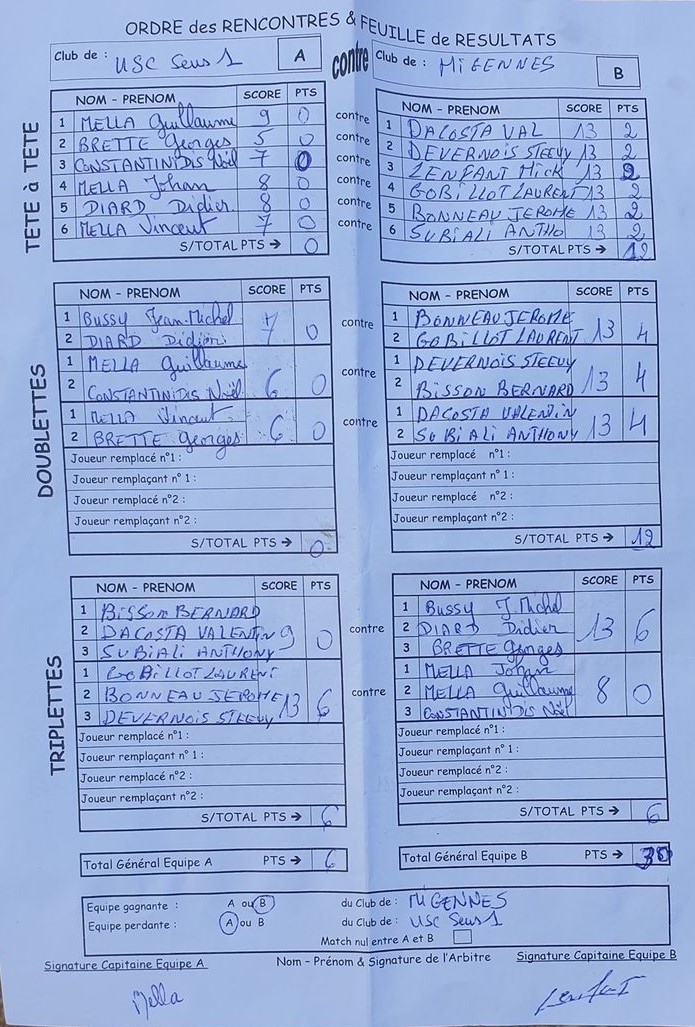 ORDRE des RENCONTRES & FEUILLE de RESULTATS
Club de : USC Sens 1 A contre Club de : MiGENNES B
TÊTE à TÊTE
NOM - PRENOM SCORE PTS NOM - PRENOM SCORE PTS
1 MELLA Guillaume 9 0 contre 1 DACOSTA VAL 13 2
2 BRETTE Georges 5 0 contre 2 DEVERNOIS STEEVY 13 2
3 CONSTANTINIDIS Noël 7 0 contre 3 LENFANT Mick 13 2
4 MELLA Johan 8 0 contre 4 GOBILLOT LAURENT 13 2
5 DIARD Didier 8 0 contre 5 BONNEAU JEROME 13 2
6 MELLA Vincent 7 0 contre 6 SUBIALI ANTHO 13 2
S/TOTAL PTS → 0 S/TOTAL PTS → 12
DOUBLETTES
NOM - PRENOM SCORE PTS NOM - PRENOM SCORE PTS
1 BUSSY Jean-Michel 1 BONNEAU JEROME
2 DIARD Didier 7 0 contre 2 GOBILLOT LAURENT 13 4
1 MELLA Guillaume 1 DEVERNOIS STEEVY
2 CONSTANTINIDIS Noël 6 0 contre 2 BISSON BERNARD 13 4
1 MELLA Vincent 1 DACOSTA VALENTIN
2 BRETTE Georges 6 0 contre 2 SUBIALI ANTHONY 13 4
Joueur remplacé n°1 : Joueur remplacé n°1 :
Joueur remplaçant n°1 : Joueur remplaçant n°1 :
Joueur remplacé n°2 : Joueur remplacé n°2 :
Joueur remplaçant n°2 : Joueur remplaçant n°2 :
S/TOTAL PTS → 0 S/TOTAL PTS → 12
TRIPLETTES
NOM - PRENOM SCORE PTS NOM - PRENOM SCORE PTS
1 BISSON BERNARD 1 Bussy J. Michel
2 DACOSTA VALENTIN 9 0 contre 2 DIARD Didier 13 6
3 SUBIALI ANTHONY 3 BRETTE Georges
1 GOBILLOT LAURENT 1 MELLA Johan
2 BONNEAU JEROME 13 6 contre 2 MELLA Guillaume 8 0
3 DEVERNOIS STEEVY 3 CONSTANTINIDIS Noël
Joueur remplacé n°1 : Joueur remplacé n°1 :
Joueur remplaçant n° 1 : Joueur remplaçant n° 1 :
Joueur remplacé n°2 : Joueur remplacé n°2 :
Joueur remplaçant n°2 : Joueur remplaçant n°2 :
S/TOTAL PTS → 6 S/TOTAL PTS → 6
Total Général Equipe A PTS → 6 Total Général Equipe B PTS → 30
Equipe gagnante : A ou B du Club de : MiGENNES
Equipe perdante : A ou B du Club de : USC Sens 1
Match nul entre A et B
Signature Capitaine Equipe A Nom - Prénom & Signature de l'Arbitre Signature Capitaine Equipe B
Mella Lenfant